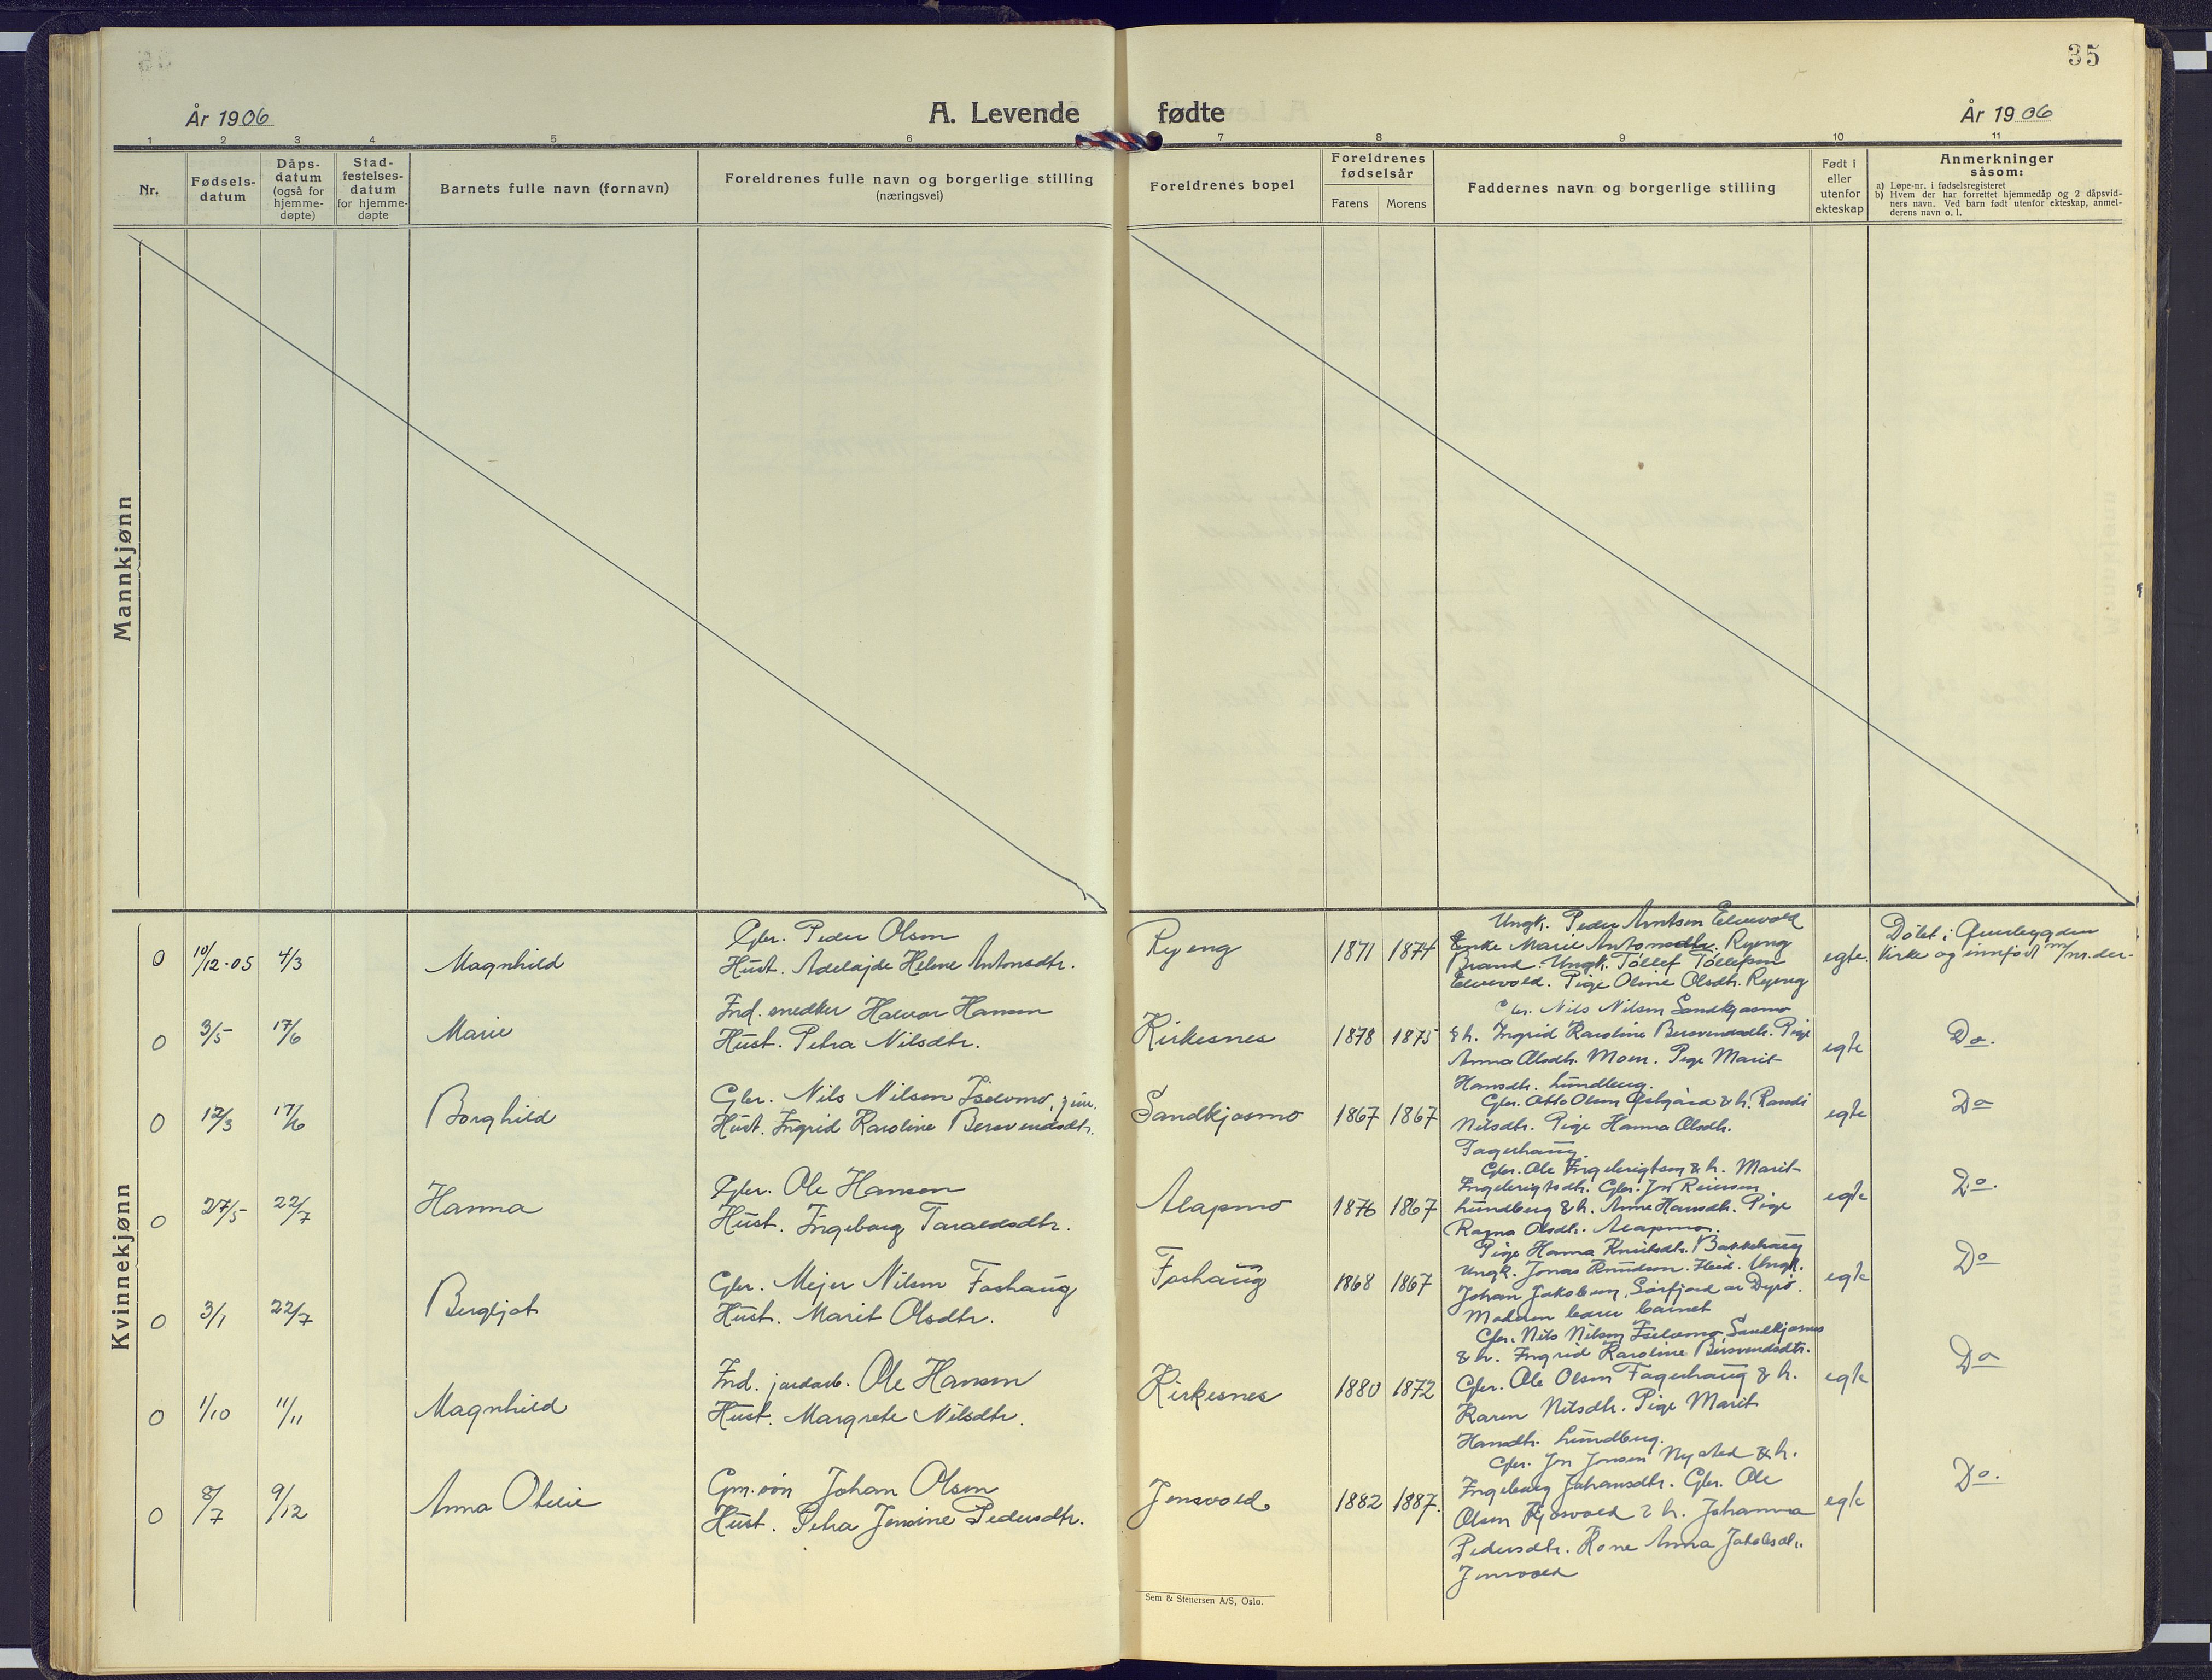 35
År 1906
A. Levende fødte
År 1906
1 2 3 4 5 6 7 8 9 10 11
Nr.
Fødsels-
datum
Dåps-
datum
(også for
hjemme-
døpte)
Stad-
festelses-
datum
for hjemme-
døpte
Barnets fulle navn (fornavn)
Foreldrenes fulle navn og borgerlige stilling
(næringsvei)
Foreldrenes bopel
Foreldrenes
fødselsår
Farens Morens
Faddernes navn og borgerlige stilling
Født i
eller
utenfor
ekteskap
Anmerkninger
såsom:
a) Løpe-nr. i fødselsregisteret
b) Hvem der har forrettet hjemmedåp og 2 dåpsvid-
ners navn. Ved barn født utenfor ekteskap, anmel-
derens navn o. l.
Mannkjønn
Kvinnekjønn
0 10/12-05 4/3 Magnhild
Gbr. Peder Olsen
Hust. Adelajde Helene Antonsdtr.
Ryeng 1871 1874
Ungk. Peder Arntsen Elvevold
Enke Marie Antonsdtr. Ryeng
Brand. Ungk. Tollef Tollefsen
Elvevold. Pige Oline Olsdtr. Ryeng
egte.
Døbt i Øverbygden
kirke og innført m/nr. der.
0 3/5 17/6 Marie
Ind. snedker Halvor Hansen
Hust. Petra Nilsdtr.
Kirkesnes 1878 1875
Gbr. Nils Nilsen Sandkjosmo
& h. Ingrid Karoline Bersvendsdtr. Pige
Anna Olsdtr. Moen. Pige Marit
Hansdtr. Lundberg.
egte
Do.
0 12/3 17/6 Borghild
Gbr. Nils Nilsen Iselvmo, jun.
Hust. Ingrid Karoline Bersvendsdtr.
Sandkjosmo 1867 1867
Gbr. Otto Olsen & h. Randi
Nilsdtr. Pige Hanna Olsdtr.
Fagerhaug.
egte
Do
0 27/5 22/7 Hanna
Gbr. Ole Hansen
Hust. Ingeborg Taraldsdtr.
Alapmo 1876 1867
Gbr. Ole Ingebrigtsen & h. Marit
Ingebrigtsdtr. Gbr. Jon Reiersen
Lundberg & h. Anne Hansdtr. Pige
Ragna Olsdtr. Alapmo.
egte
Do.
0 3/1 22/7 Bergljot
Gbr. Mejer Nilsen Foshaug
Hust. Marit Olsdtr.
Foshaug 1868 1867
Pige Hanna Knutsdtr. Bakkehaug
Ungk. Jonas Knudsen. Ungk.
Johan Jakobsen, Sørfjord av Dyrø.
Moderen barnet
egte
Do
0 1/10 11/11 Magnhild
Ind. jordarb. Ole Hansen
Hust. Margrete Nilsdtr.
Kirkesnes 1880 1872
Gbr. Nils Nilsen Iselvmo, Sandkjosmo
& h. Ingrid Karoline Bersvendsdtr.
Gbr. Ole Olsen Fagerhaug & h.
Karen Nilsdtr. Pige Marit
Hansdtr. Lundberg.
egte
Do
0 8/7 9/12 Anna Otelie
Gm. søn Johan Olsen
Hust. Petra Jensine Pedersdtr.
Jensvold. 1882 1887.
Gbr. Jon Jonsen Nysted & h.
Ingeborg Johansdtr. Gbr. Ole
Olsen & h. Johanna
Pedersdtr. Kone Anna Jakobsdtr.
Jensvold
egte
Do.
Sem & Stenersen A/S, Oslo.